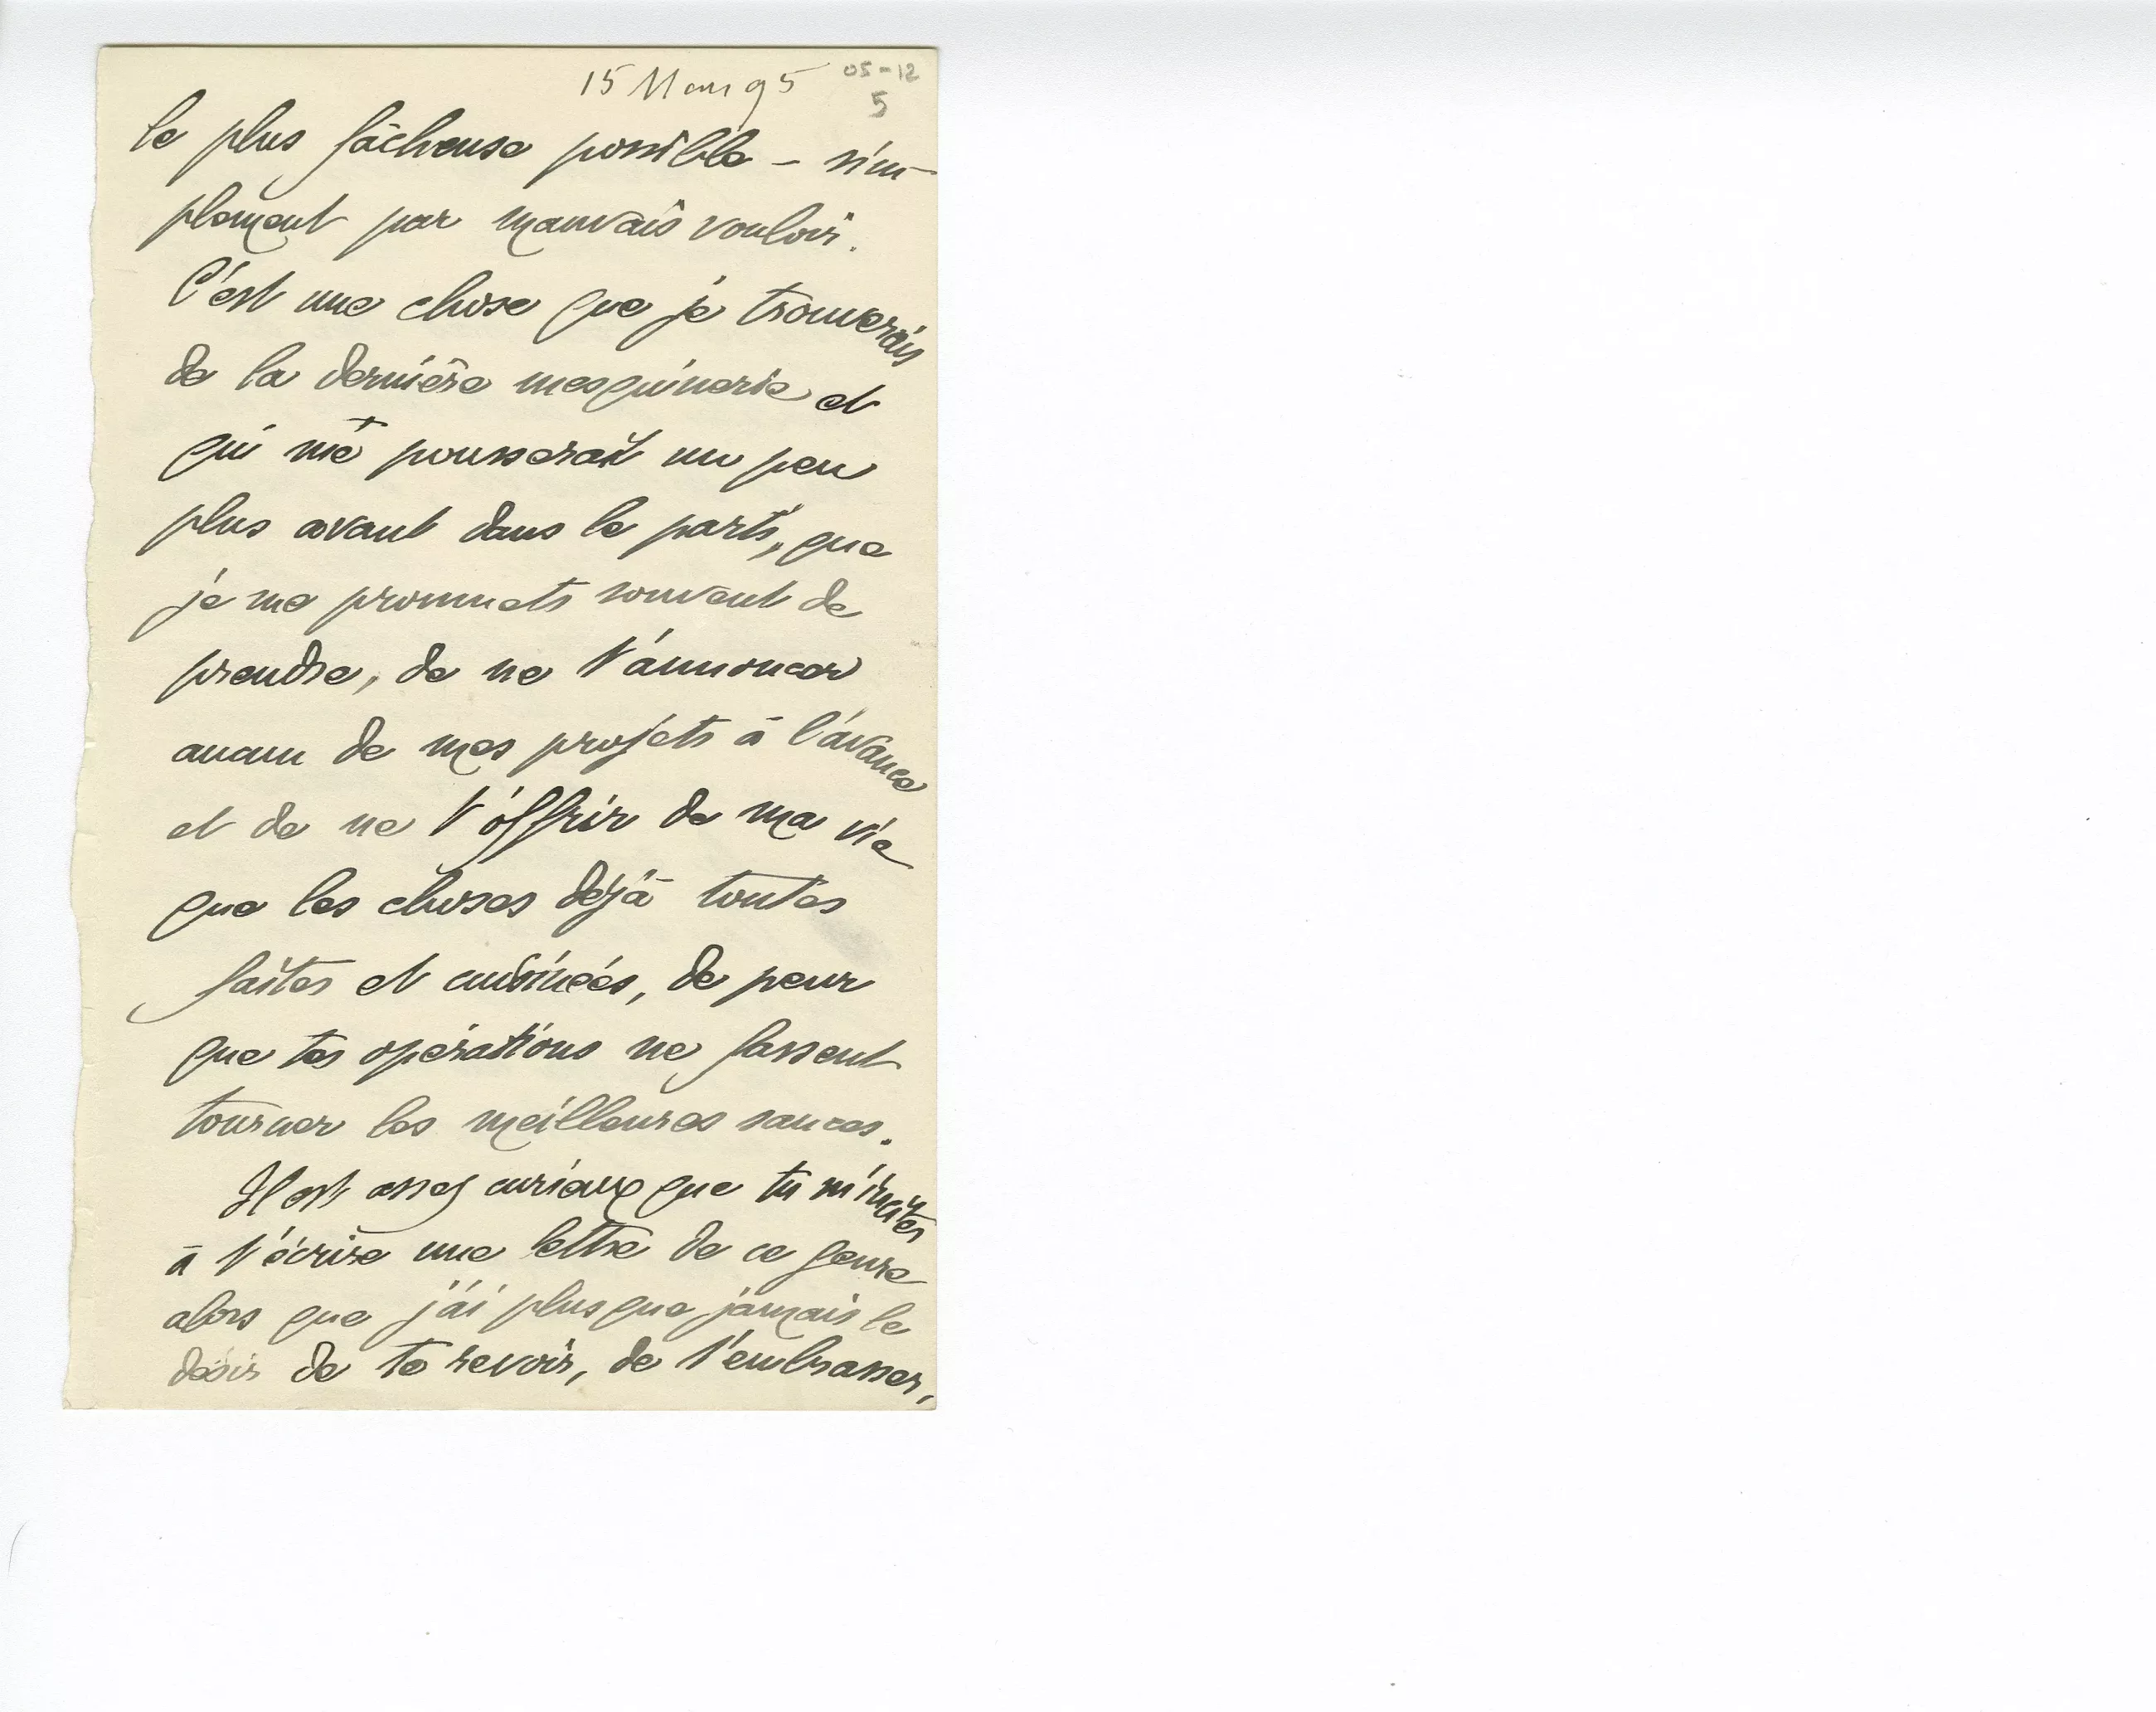 15 Mars 95
05-12
5
le plus fâcheuse possible – sim-
plement par mauvais vouloir.
C'est une chose que je trouverais
de la dernière mesquinerie et
qui me pousserait un peu
plus avant dans le parti, que
je me promets souvent de
prendre, de ne t'annoncer
aucun de mes projets à l'avance
et de ne t'offrir de ma vie
que les choses déjà toutes
faites et cuisinées, de peur
que tes opérations ne fassent
tourner les meilleures sauces.
Il est assez curieux que tu m'incites
à t'écrire une lettre de ce genre
alors que j'ai plus que jamais le
désir de te revoir, de t'embrasser,